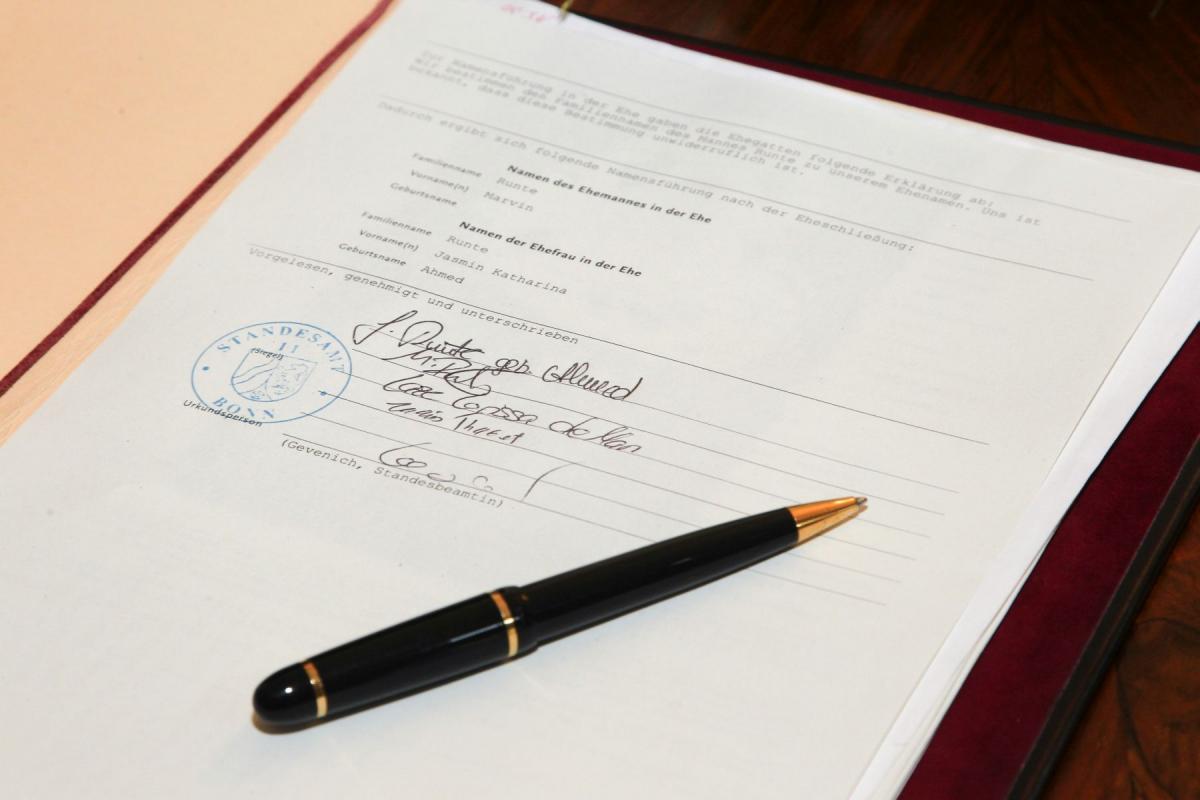 Zur Namensführung in der Ehe gaben die Ehegatten folgende Erklärung ab:
Wir bestimmen den Familiennamen des Mannes Runte zu unserem Ehenamen. Uns ist
bekannt, dass diese Bestimmung unwiderruflich ist.
Dadurch ergibt sich folgende Namensführung nach der Eheschließung:
Namen des Ehemannes in der Ehe
Familienname Runte
Vorname(n) Marvin
Geburtsname
Namen der Ehefrau in der Ehe
Familienname Runte
Vorname(n) Jasmin Katharina
Geburtsname Ahmed
Vorgelesen, genehmigt und unterschrieben
J. Runte geb. Ahmed
STANDESAMT
11
(Siegel)
BONN
Urkundsperson
(Gevenich, Standesbeamtin)